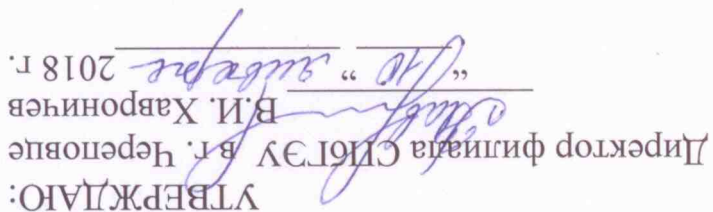 УТВЕРЖДАЮ:
Директор филиала СПбГЭУ в г. Череповце
В.И. Хаврoничев
"10" января 2018 г.